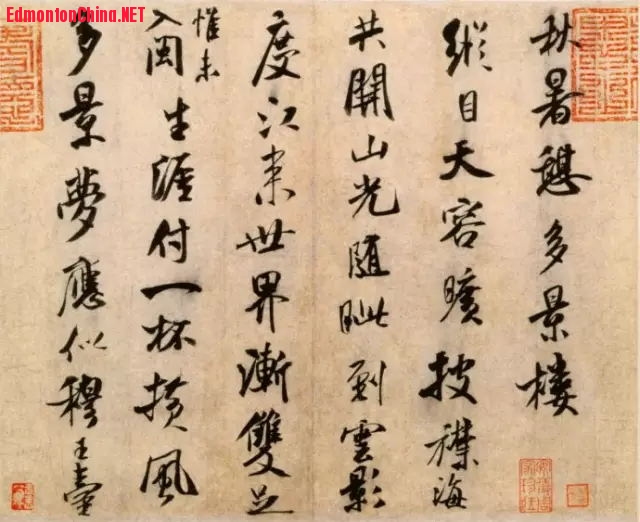 EdmontonChina.NET
秋暑憩多景樓
縱目天容曠披襟海
共開山光隨眦到雲影
度江来世界漸雙足
惟未
入閩生涯付一杯橫風
多景夢應似穆王臺